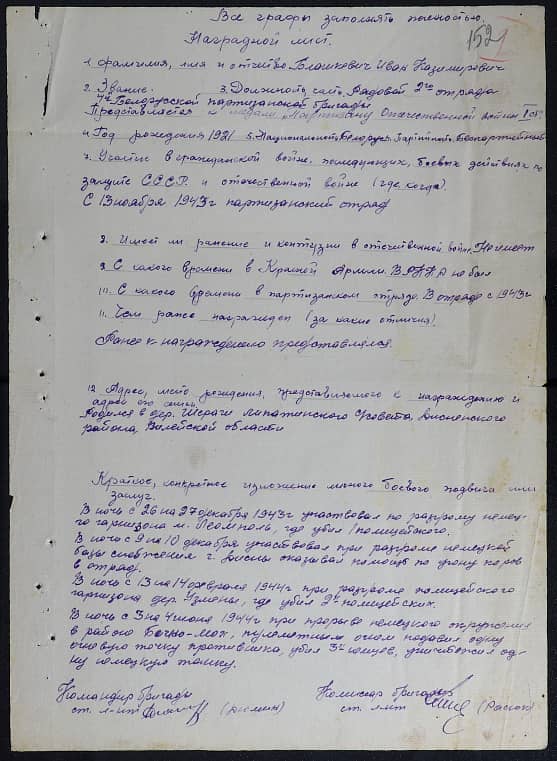 Все графы заполнять полностью.
152
Наградной лист.
1. фамилия, имя и отчество Блашкевич Иван Казимирович
2. Звание. 3. Должность, часть Рядовой 2го отряда
4й Белорусской партизанской бригады
Представляется к медали "Партизану Отечественной войны" I ст.
4. Год рождения 1921 5. Национальность Белорус. Партийность Беспартийный
7. Участие в гражданской войне, последующих, боевых действиях по
защите СССР и отечественной войне (где, когда).
С 13 ноября 1943г партизанский отряд
8. Имеет ли ранение и контузии в отечественной войне. Не имеет
9. С какого времени в Красной Армии. В РККА не был
10. С какого времени в партизанском отряде. В отряде с 1943г
11. Чем ранее награжден (за какие отличия).
Ранее к награждению представлялся.
12 Адрес, место рождения, представляемого к награждению и
адрес его семьи
Родился в дер. Шараги Совета, Дисненского
района, Вилейской области
Краткое, конкретное изложение личного боевого подвига или
заслуг.
В ночь с 26 на 27 декабря 1943г участвовал по разгрому немец-
го гарнизона м. Леомполь, где убил 1 полицейского.
В ночь с 9 на 10 декабря участвовал при разгроме немецкой
базы снабжения г. Дисны оказывал помощь по угону коров
в отряд.
В ночь с 13 на 14 февраля 1944г при разгроме полицейского
гарнизона дер. Узмены, где убил 2х полицейских.
В ночь с 3 на 4 июня 1944г при прорыве немецкого окружения
в районе пулеметным огнем подавил одну
огневую точку противника, убил 3х немцев, уничтожил од-
ну немецкую танку.
Командир бригады Комиссар бригады
ст. л-нт (Дюмин) ст. л-нт